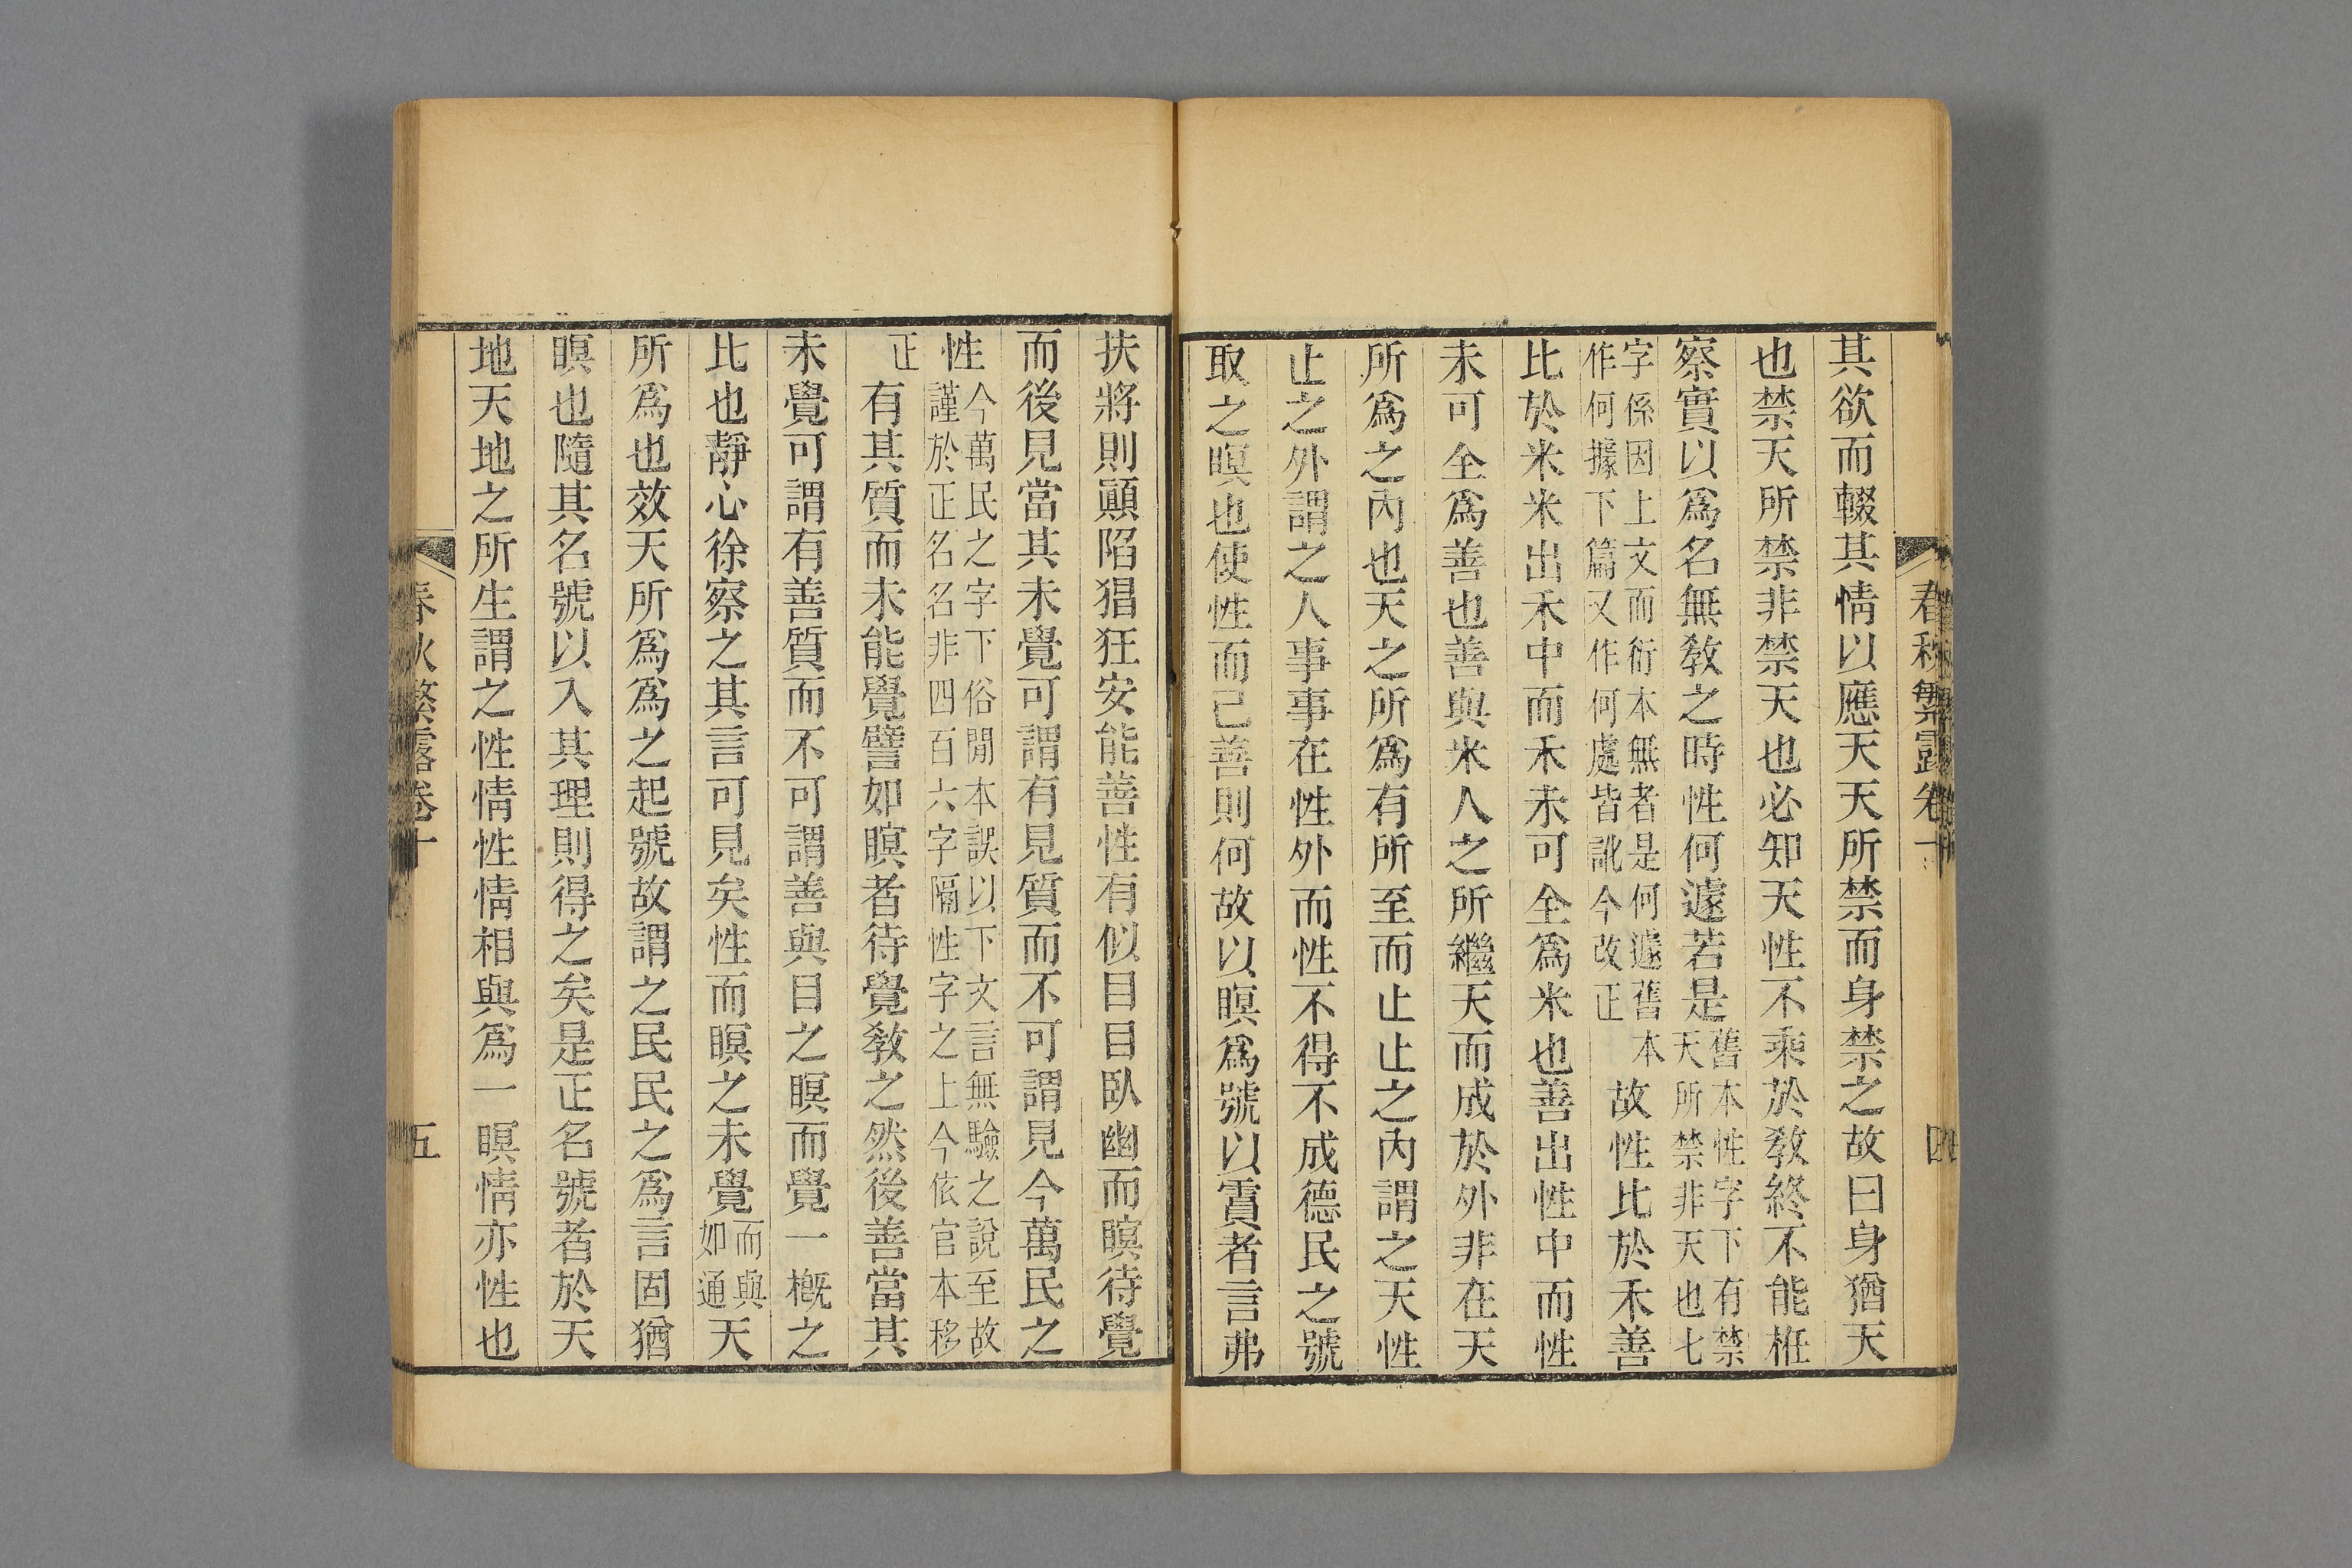 春秋繁露卷十 四
其欲而輟其情以應天天所禁而身禁之故曰身猶天
也禁天所禁非禁天也必知天性不乘於敎終不能栣
察實以爲名無敎之時性何遽若是舊本性字下有禁天所禁非天也七
字係因上文而衍本無者是何遽舊本作何據下篇又作何處皆訛今改正故性比於禾善
比於米米出禾中而禾未可全爲米也善出性中而性
未可全爲善也善與米人之所繼天而成於外非在天
所爲之內也天之所爲有所至而止止之內謂之天性
止之外謂之人事事在性外而性不得不成德民之號
取之瞑也使性而已善則何故以瞑爲號以霣者言弗
扶將則顚陷猖狂安能善性有似目目臥幽而瞑待覺
而後見當其未覺可謂有見質而不可謂見今萬民之
性今萬民之字下俗閒本誤以下文言無驗之說至故謹於正名名非四百六字隔性字之上今依官本移
正有其質而未能覺譬如瞑者待覺敎之然後善當其
未覺可謂有善質而不可謂善與目之瞑而覺一槪之
比也靜心徐察之其言可見矣性而瞑之未覺而與如通天
所爲也效天所爲爲之起號故謂之民民之爲言固猶
瞑也隨其名號以入其理則得之矣是正名號者於天
地天地之所生謂之性情性情相與爲一瞑情亦性也
春秋繁露卷十 五